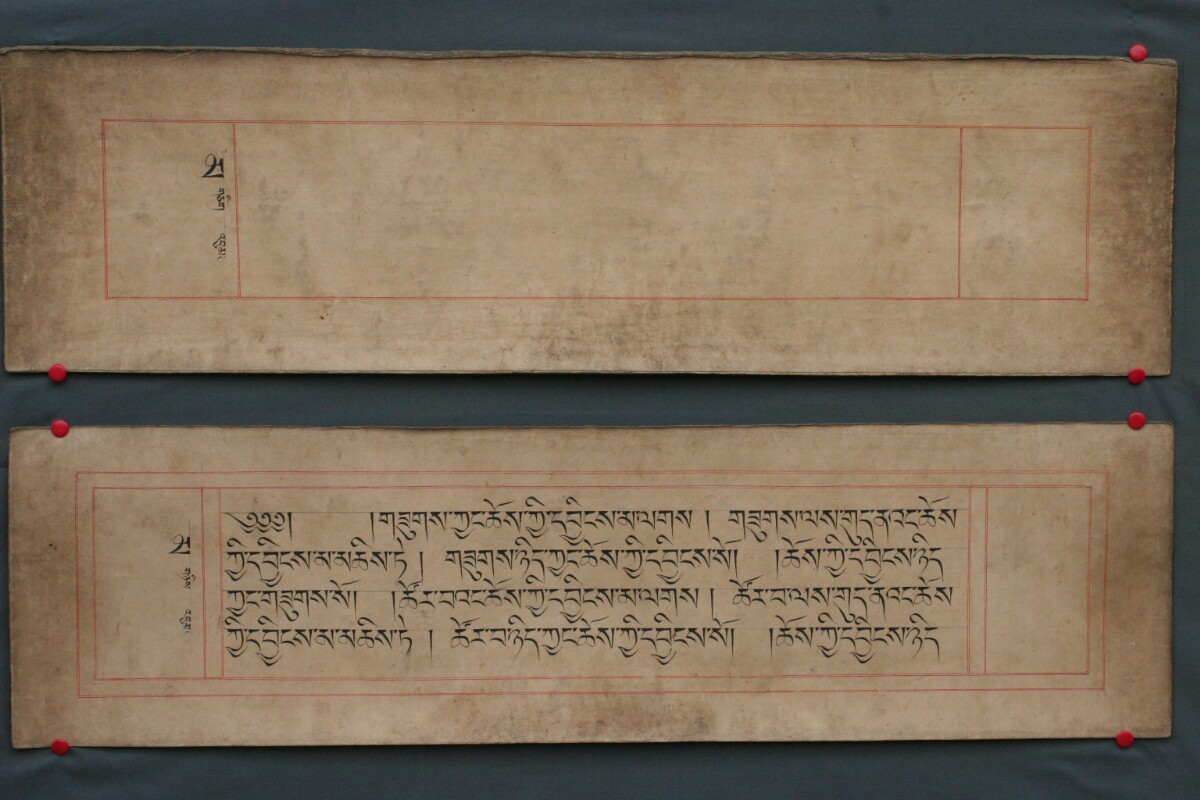 མ གཅིག འདུམ
༄༅༅། །གཟུགས་ཀྱང་ཆོས་ཀྱི་དབྱིངས་མ་ལགས། གཟུགས་ལས་གུད་ནའང་ཆོས་
ཀྱི་དབྱིངས་མ་མཆིས་ཏེ། གཟུགས་ཉིད་ཀྱང་ཆོས་ཀྱི་དབྱིངས་སོ། །ཆོས་ཀྱི་དབྱིངས་ཉིད་
ཀྱང་གཟུགས་སོ། །ཚོར་བའང་ཆོས་ཀྱི་དབྱིངས་མ་ལགས། ཚོར་བ་ལས་གུད་ནའང་ཆོས་
ཀྱི་དབྱིངས་མ་མཆིས་ཏེ། ཚོར་བ་ཉིད་ཀྱང་ཆོས་ཀྱི་དབྱིངས་སོ། །ཆོས་ཀྱི་དབྱིངས་ཉིད་